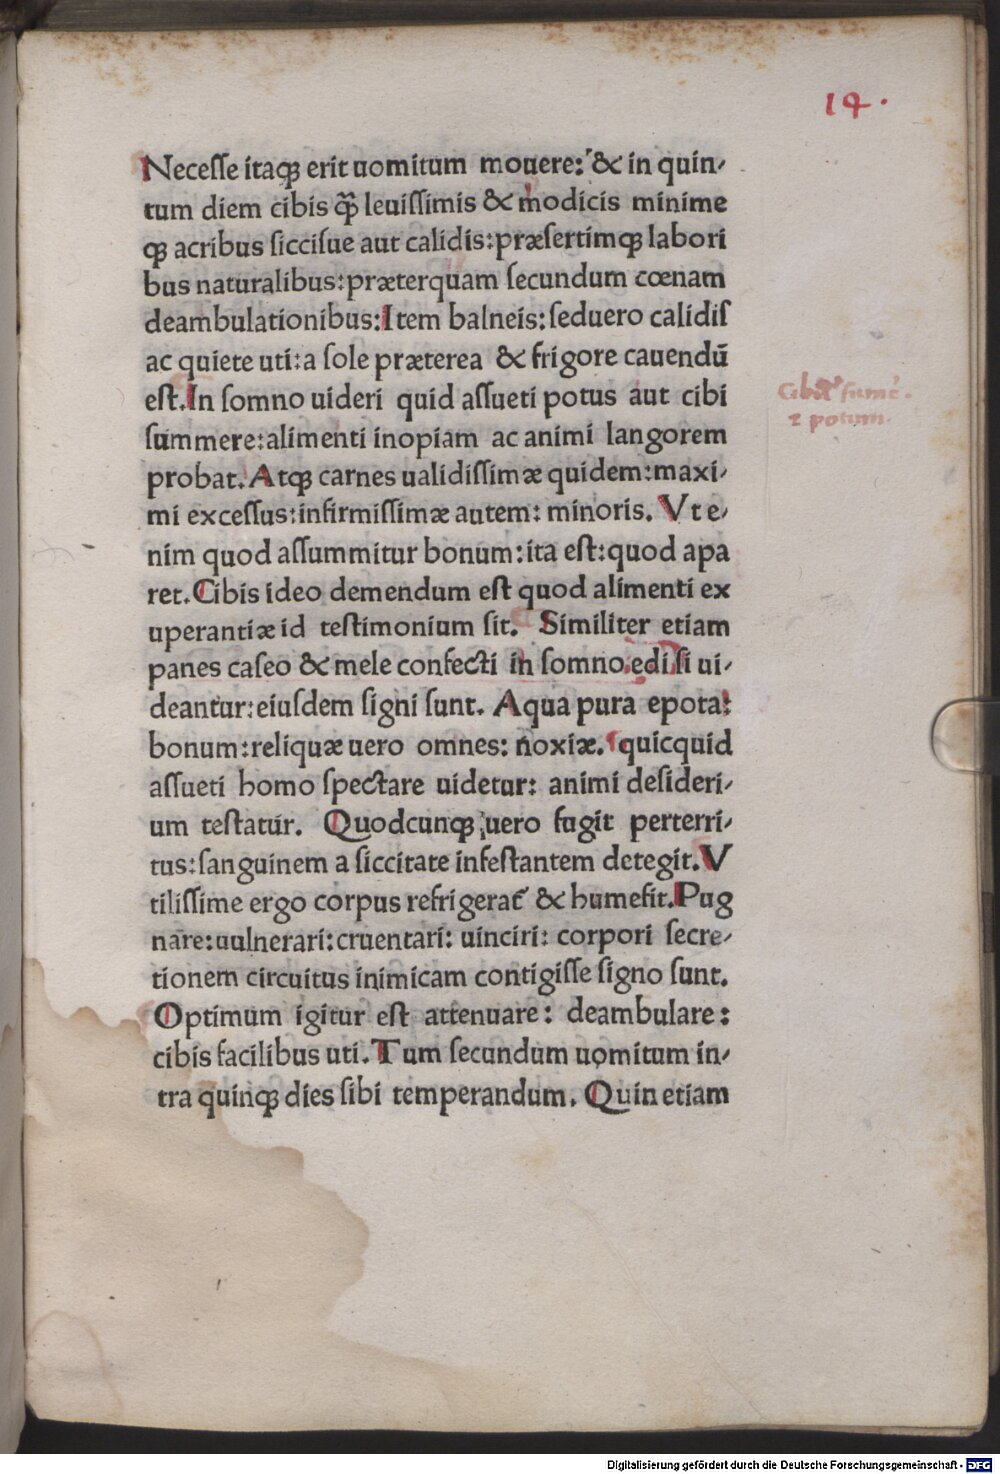 14.
Necesse itaqꝫ erit uomitum mouere: & in quin-
tum diem cibis q̃ leuissimis & modicis minime
qꝫ acribus siccisue aut calidis: præsertimqꝫ labori
bus naturalibus: præterquam secundum cœnam
deambulationibus: Item balneis: seduero calidis
ac quiete uti: a sole præterea & frigore cauendū
est. In somno uideri quid assueti potus aut cibi
summere: alimenti inopiam ac animi langorem
probat. Atqꝫ carnes ualidissimæ quidem: maxi-
mi excessus: infirmissimæ autem: minoris. Vt e-
nim quod assummitur bonum: ita est: quod apa
ret. Cibis ideo demendum est quod alimenti ex
uperantiæ id testimonium sit. Similiter etiam
panes caseo & mele confecti in somno edi si ui-
deantur: eiusdem signi sunt. Aqua pura epota:
bonum: reliquæ uero omnes: noxiæ. quicquid
assueti homo spectare uidetur: animi desideri-
um testatur. Quodcunqꝫ uero fugit perterri-
tus: sanguinem a siccitate infestantem detegit. V
tilissime ergo corpus refrigerat & humefit. Pug
nare: uulnerari: cruentari: uinciri: corpori secre-
tionem circuitus inimicam contigisse signo sunt.
Optimum igitur est attenuare: deambulare:
cibis facilibus uti. Tum secundum uomitum in-
tra quinqꝫ dies sibi temperandum. Quin etiam
⁊ potum.
Digitalisierung gefördert durch die Deutsche Forschungsgemeinschaft - DFG